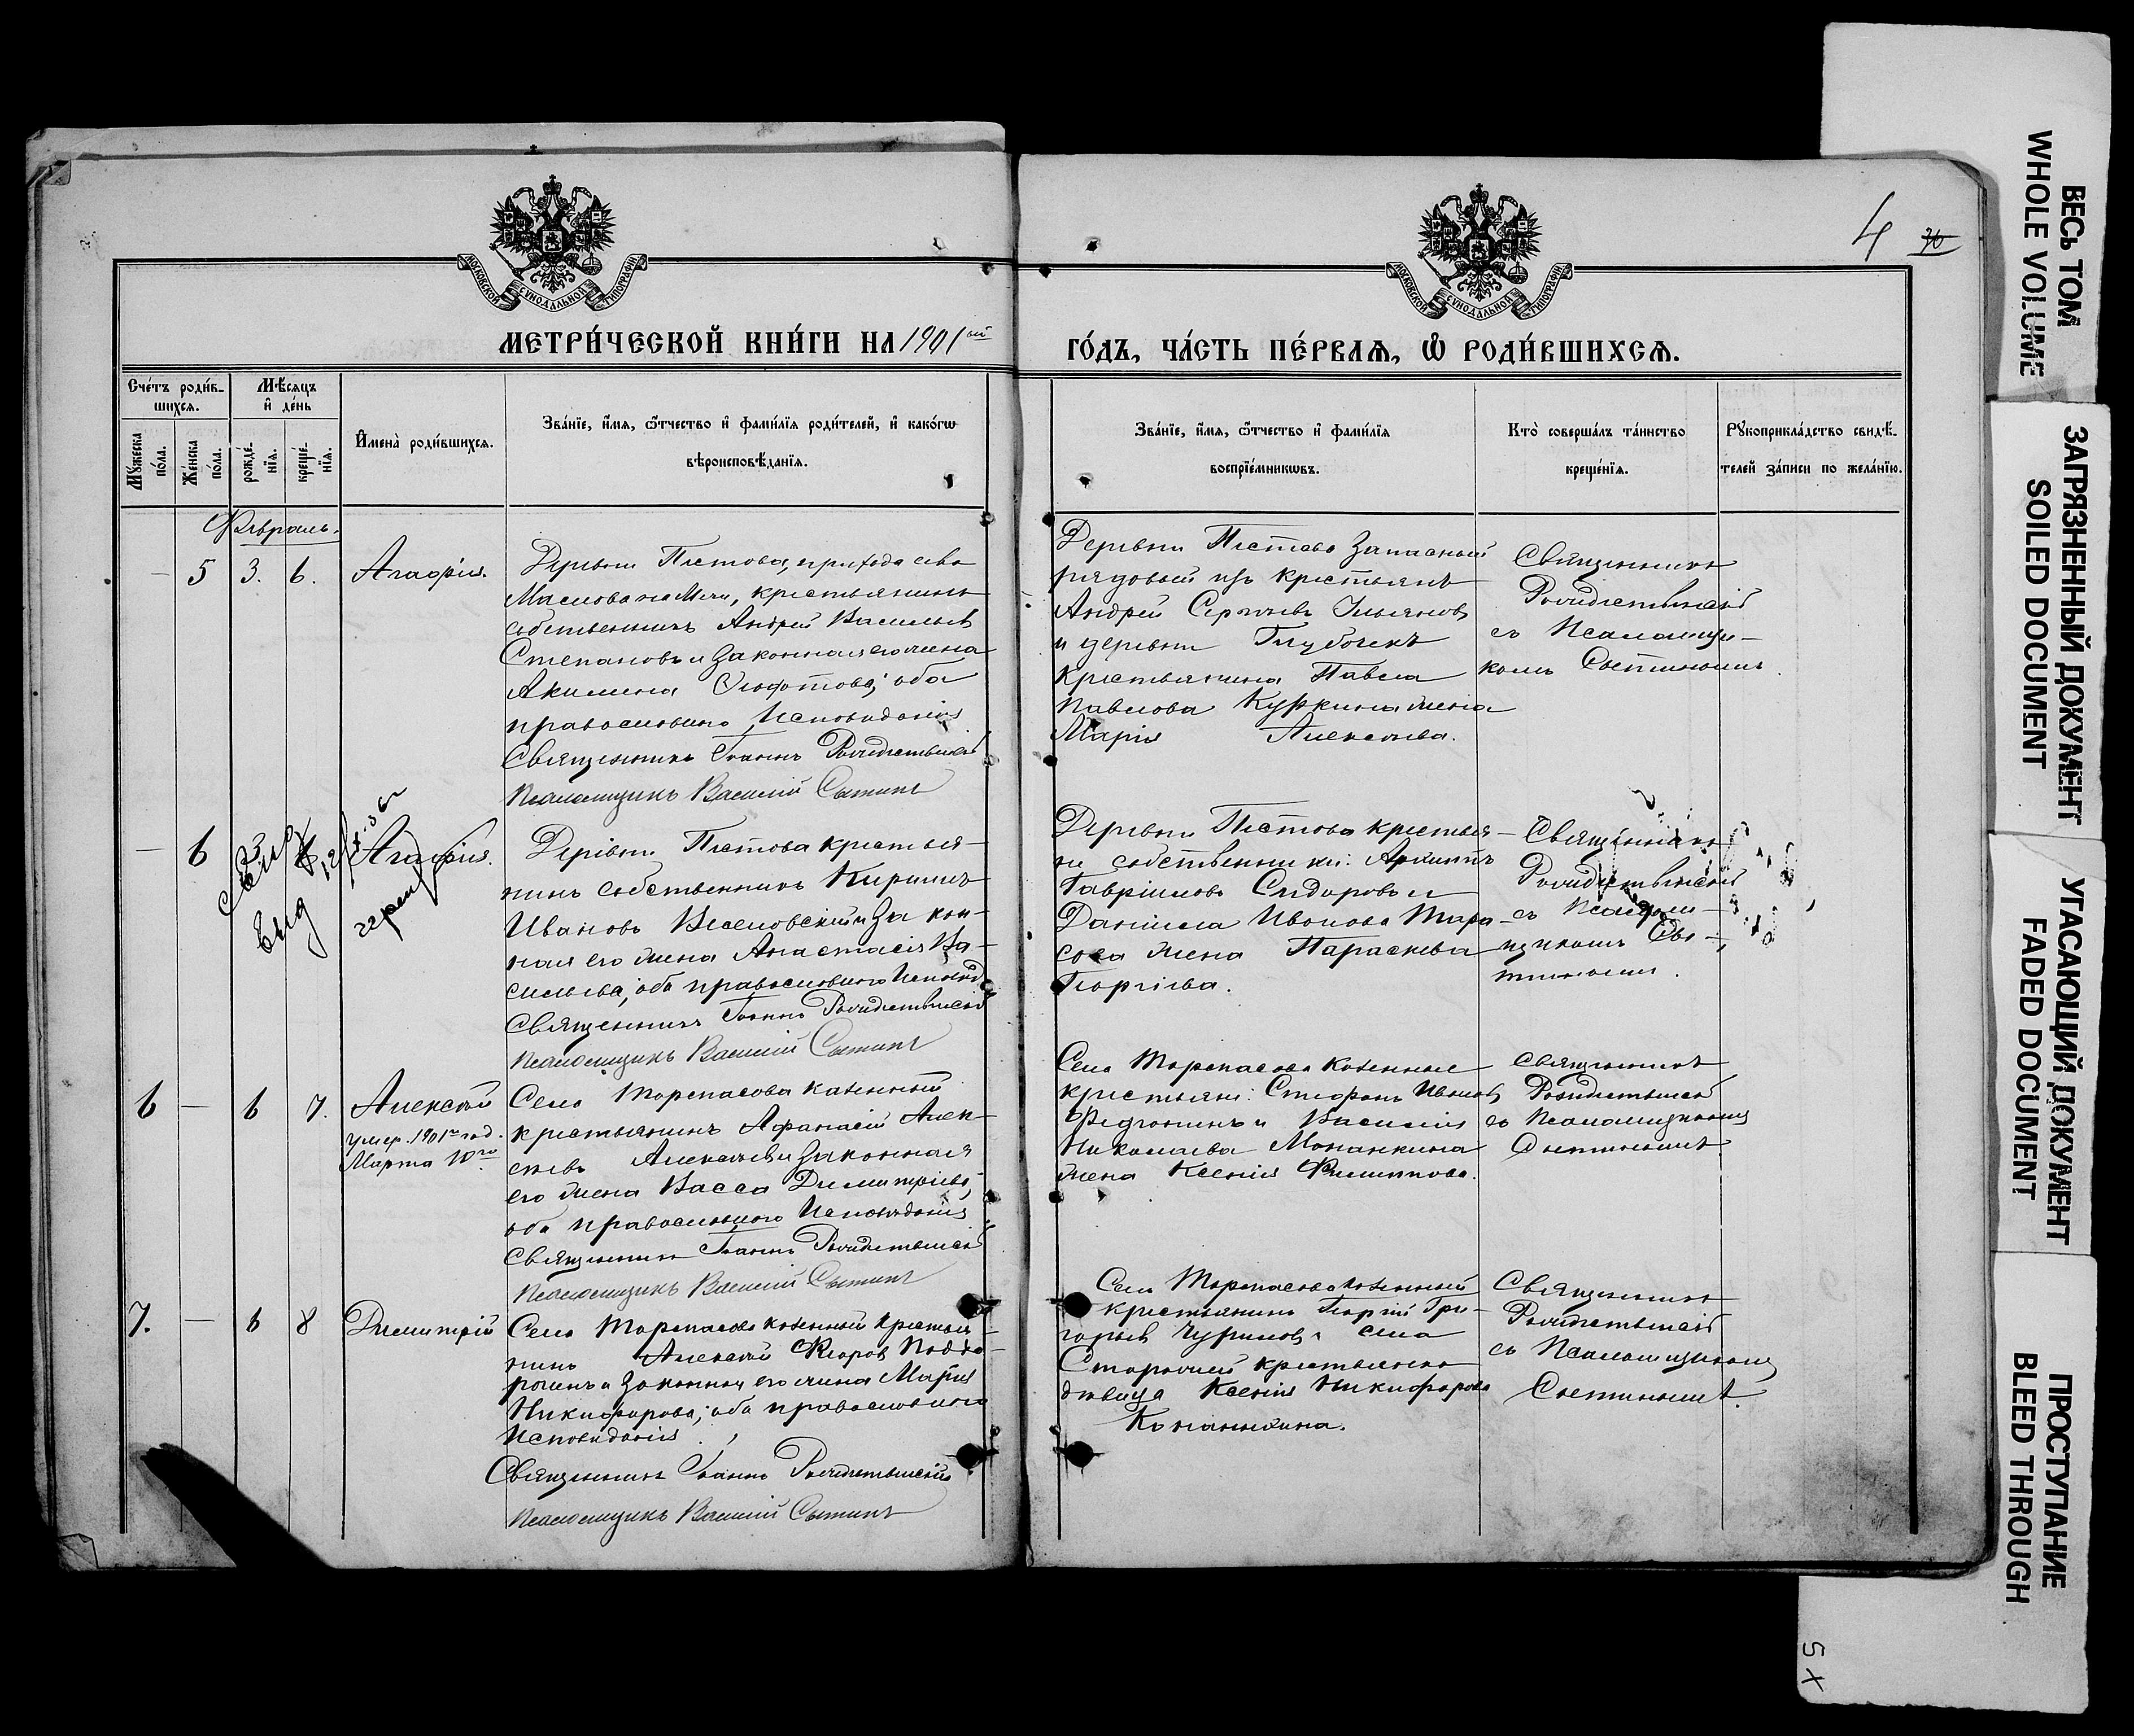 МОСКОВСКОЙ СѴНОДАЛЬНОЙ ТИПОГРАФІИ
МОСКОВСКОЙ СѴНОДАЛЬНОЙ ТИПОГРАФІИ
4
МЕТРИ́ЧЕСКОЙ КНИ́ГИ НА 1901ый
ГО́ДЪ, ЧА́СТЬ ПЕ́РВАѦ, Ѡ҆ РОДИ́ВШИХСѦ.
Сче́тъ роди́в-
шихсѧ.
Мꙋ́жеска по́ла.
Же́нска по́ла.
Мѣ́сѧцъ
и҆ де́нь
рожде́-нїѧ.
креще́-нїѧ.
И҆мена̀ роди́вшихсѧ.
Зва́нїе, и҆́мѧ, ѻ҆́тчество и҆ фами́лїѧ роди́телей, и҆ како́гѡ
вѣроисповѣ́данїѧ.
Зва́нїе, и҆́мѧ, ѻ҆́тчество и҆ фами́лїѧ
воспрїе́мникѡвъ.
Кто̀ соверша́лъ та́инство
креще́нїѧ.
Рꙋкоприкла́дство свидѣ́-
телей за́писи по жела́нїю.
Февраль.
— 5 3. 6. Агафія.
Деревни Пестова, прихода села
крестьянинъ
собственникъ Андрей Васильевъ
Степановъ и законная его жена
Акилина
оба
православнаго Исповѣданія
Священникъ Іоаннъ Рождественскій
Псаломщикъ Василій Сытинъ
Деревни Пестова запасный
рядовой изъ крестьянъ
Андрей Сергѣевъ Ульяновъ
и деревни
крестьянина Павла
Павлова Куркина жена
Марія Алексѣева.
Священникъ
Рождественскій
съ Псаломщи-
комъ Сытинымъ.
— 6 Агафія.
Деревни Пестова крестья-
нинъ собственникъ Кириллъ
Ивановъ и закон-
ная его жена Анастасія Ва-
сильева, оба православнаго Исповѣд.
Священникъ Іоаннъ Рождественскій
Псаломщикъ Василій Сытинъ
Деревни Пестова крестья-
не собственники: Архипъ
Гавріиловъ Сидоровъ и
Даніила Иванова Тара-
сова жена Параскева
Георгіева.
Священникъ
Рождественскій
съ Псалом-
щикомъ Сы-
тинымъ.
6 — 6 7. Алексѣй
умер. 1901го год.
Марта 10го
Село Торопасова казенный
крестьянинъ Афанасій Алек-
сѣевъ и законная
его жена Васса Димитріева,
оба православнаго Исповѣданія
Священникъ Іоаннъ Рождественскій
Псаломщикъ Василій Сытинъ
Села казенные
крестьяне: Стефанъ Ивановъ
и Василія
Николаева жена Ксенія Филиппова.
Священникъ
Рождественскій
съ Псаломщикомъ
Сытинымъ
7. — 6 8 Димитрій
казенный крестья-
нинъ Алексѣй
и законная его жена Марія
Никифорова; оба православнаго
Исповѣданія.
Священникъ Іоаннъ Рождественскій
Псаломщикъ Василій Сытинъ
казенный
крестьянинъ Георгій Гри-
горьевъ Чуриловъ и села
крестьянская
дѣвица Ксенія Никифорова
Священникъ
Рождественскій
съ Псаломщикомъ
Сытинымъ.
ВЕСЬ ТОМ
WHOLE VOLUME
ЗАГРЯЗНЕННЫЙ ДОКУМЕНТ
SOILED DOCUMENT
УГАСАЮЩИЙ ДОКУМЕНТ
FADED DOCUMENT
ПРОСТУПАНИЕ
BLEED THROUGH
5 X